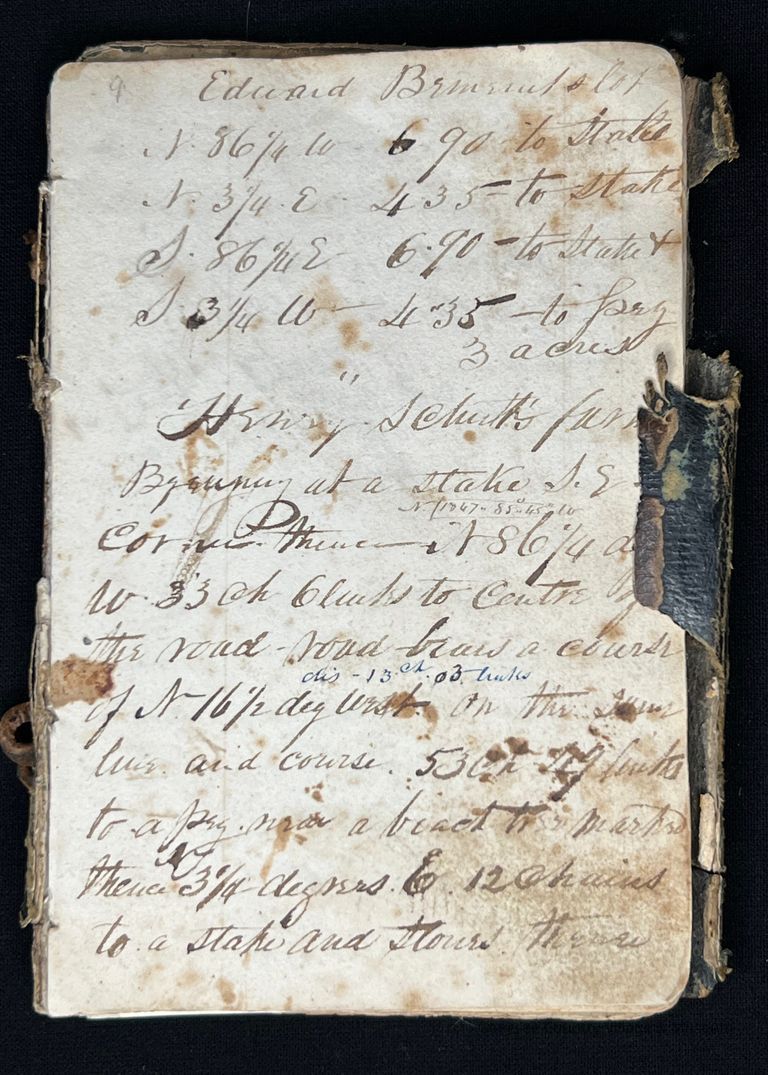 9
Edward Bements lot
N. 86 1/4 W 6 90 to stake
N. 3 3/4 E 4 35 - to stake
S. 86 1/4 E 6.90 - to stake &
S. 3 3/4 W - 4 35 - to peg
3 acres
"
Henry Schutts farm
Begening at a stake S. E
N (1847 - 85° 45" W
Corner thence - N 86 1/4 de
W 33 ch 6 links to Centre
the road - road bears a course
dis - 13 ch. 03 links
of N 16 1/2 deg West. on the same
line and course. 53 ch links
to a peg near a beach tree marked
N
thence 3 3/4 degrees E. 12 Chains
to a stake and stones thence